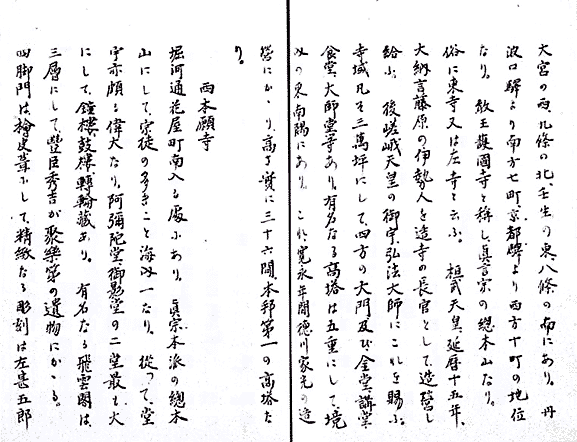 大宮の西、九條の北、壬生の東、八條の南にあり。 丹
波口驛より南方七町、京都驛より西方十町の地位
なり。 敎王護國寺と稱し、眞言宗の總本山たり。
俗に東寺又は左寺と云ふ。 桓武天皇、延曆十五年、
大納言藤原の伊勢人を造寺の長官として造營し
給ふ。 後嵯峨天皇の御宇、弘法大師にこれを賜ふ。
寺域凡そ三萬坪にして、四方の大門及び金堂、講堂、
食堂、大師堂等あり。有名なる高塔は五重にして、境
內の東南隅にあり。 これ寬永年間德川家光の造
營にかゝり、高さ實に三十六間、本邦第一の高塔た
り。
西本願寺
堀河通花屋町南入る處にあり。 眞宗本派の總本
山にして、宗徒の多きこと海內一たり。 從つて、堂
宇亦頗る偉大なり。阿彌陀堂、御影堂の二堂最も大
にして、鐘樓、鼓樓、轉輪藏あり。 有名なる飛雲閣は
三層にして、豐臣秀吉が聚樂第の遺物にかゝる。
四脚門は檜皮葺にして、精緻なる彫刻は左甚五郎